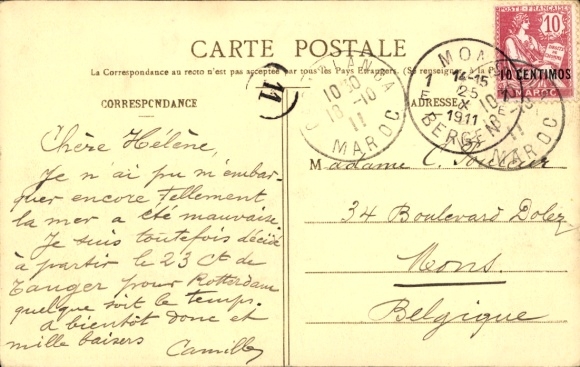 CARTE POSTALE
La Correspondance au recto n'est pas acceptée par tous les Pays Etrangers. (Se renseigner à la
CORRESPONDANCE
ADRESSE
Chère Hélène,
Je n'ai pu m'embar-
quer encore tellement
la mer a été mauvaise.
Je suis toutefois décidé
à partir le 23 Ct de
Tanger pour Rotterdam
quelque soit le temps.
A bientôt donc et
mille baisers
Camille
Madame C.
34 Boulevard Dolez
Mons.
Belgique
11
10
18-10
11
MAROC
MONS
14-15
25
X
1911
BERGEN
MAROC
POSTE FRANÇAISE
10
10 CENTIMOS
MAROC